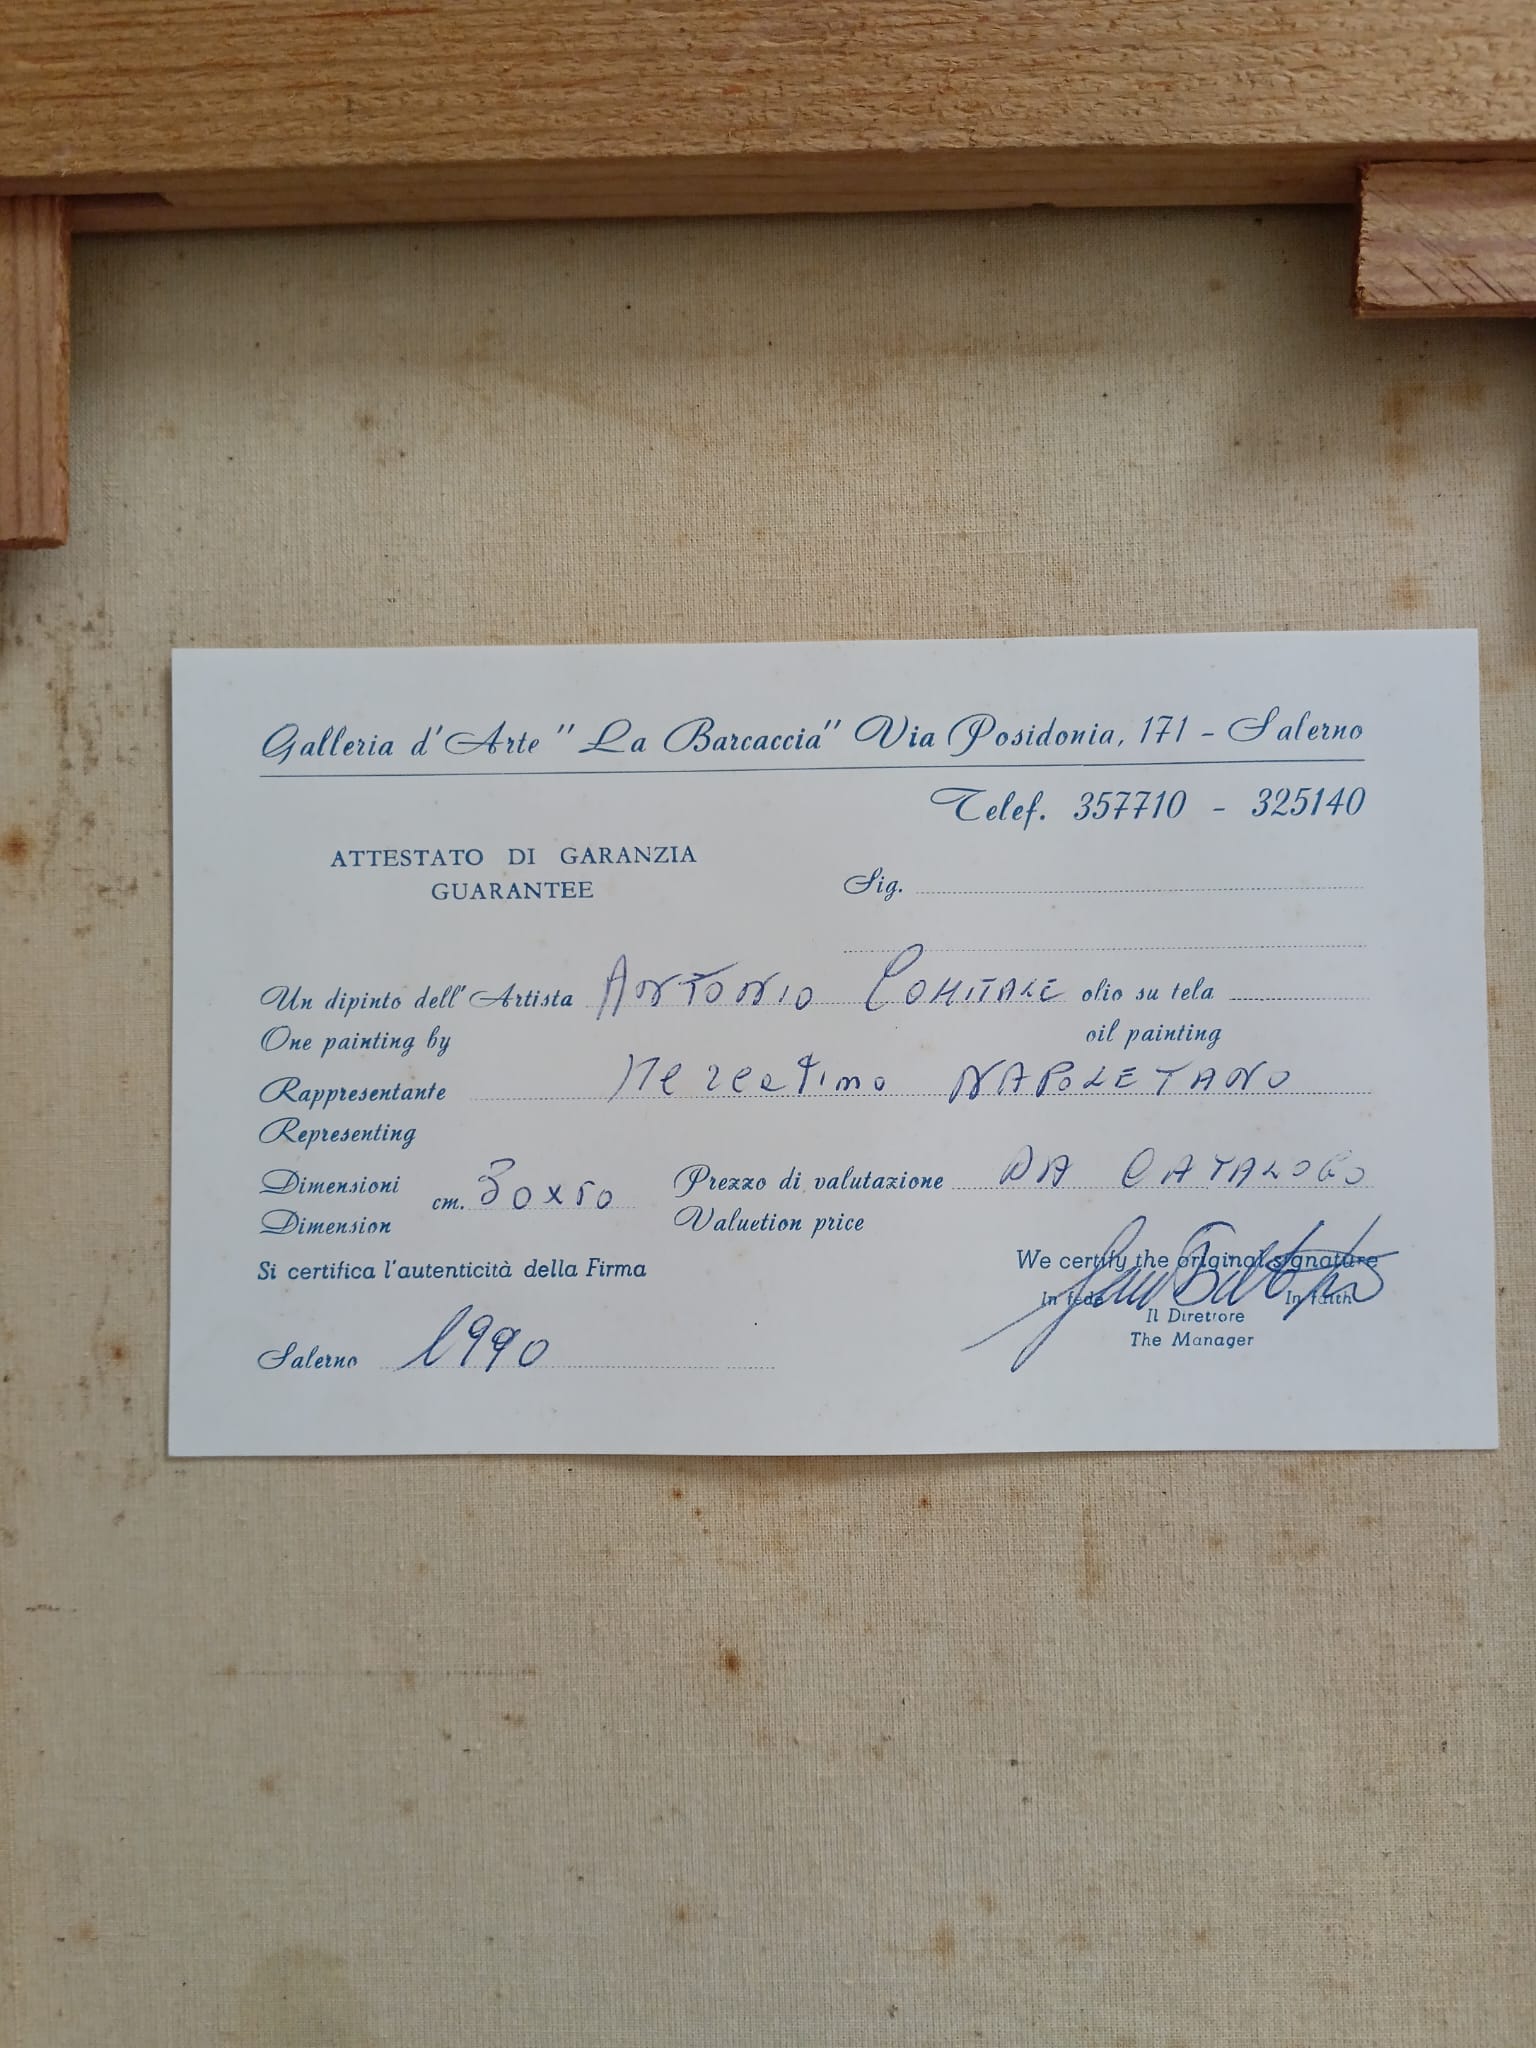 Galleria d'Arte "La Barcaccia" Via Posidonia, 171 - Salerno
Telef. 357710 - 325140
ATTESTATO DI GARANZIA
GUARANTEE
Sig.
Un dipinto dell'Artista ANTONIO COMITALE olio su tela
One painting by oil painting
Rappresentante Mercatino NAPOLETANO
Representing
Dimensioni cm. 30x50 Prezzo di valutazione DA CATALOGO
Dimension Valuetion price
Si certifica l'autenticità della Firma We certify the original signature
In fede In faith
Il Direttore
The Manager
Salerno 1990